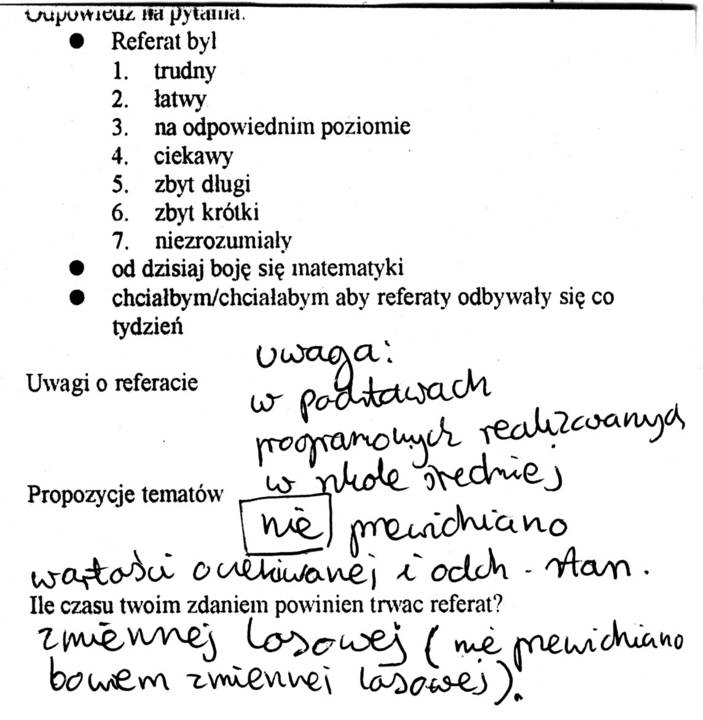 Odpowiedz na pytania:
● Referat był
1. trudny
2. łatwy
3. na odpowiednim poziomie
4. ciekawy
5. zbyt długi
6. zbyt krótki
7. niezrozumiały
● od dzisiaj boję się matematyki
● chciałbym/chciałabym aby referaty odbywały się co
tydzień
uwaga:
Uwagi o referacie
w podstawach
programowych realizowanych
w szkole średniej
Propozycje tematów
nie przewidziano
wartości oczekiwanej i odch. stan.
Ile czasu twoim zdaniem powinien trwac referat?
zmiennej losowej (nie przewidziano
bowiem zmiennej losowej).